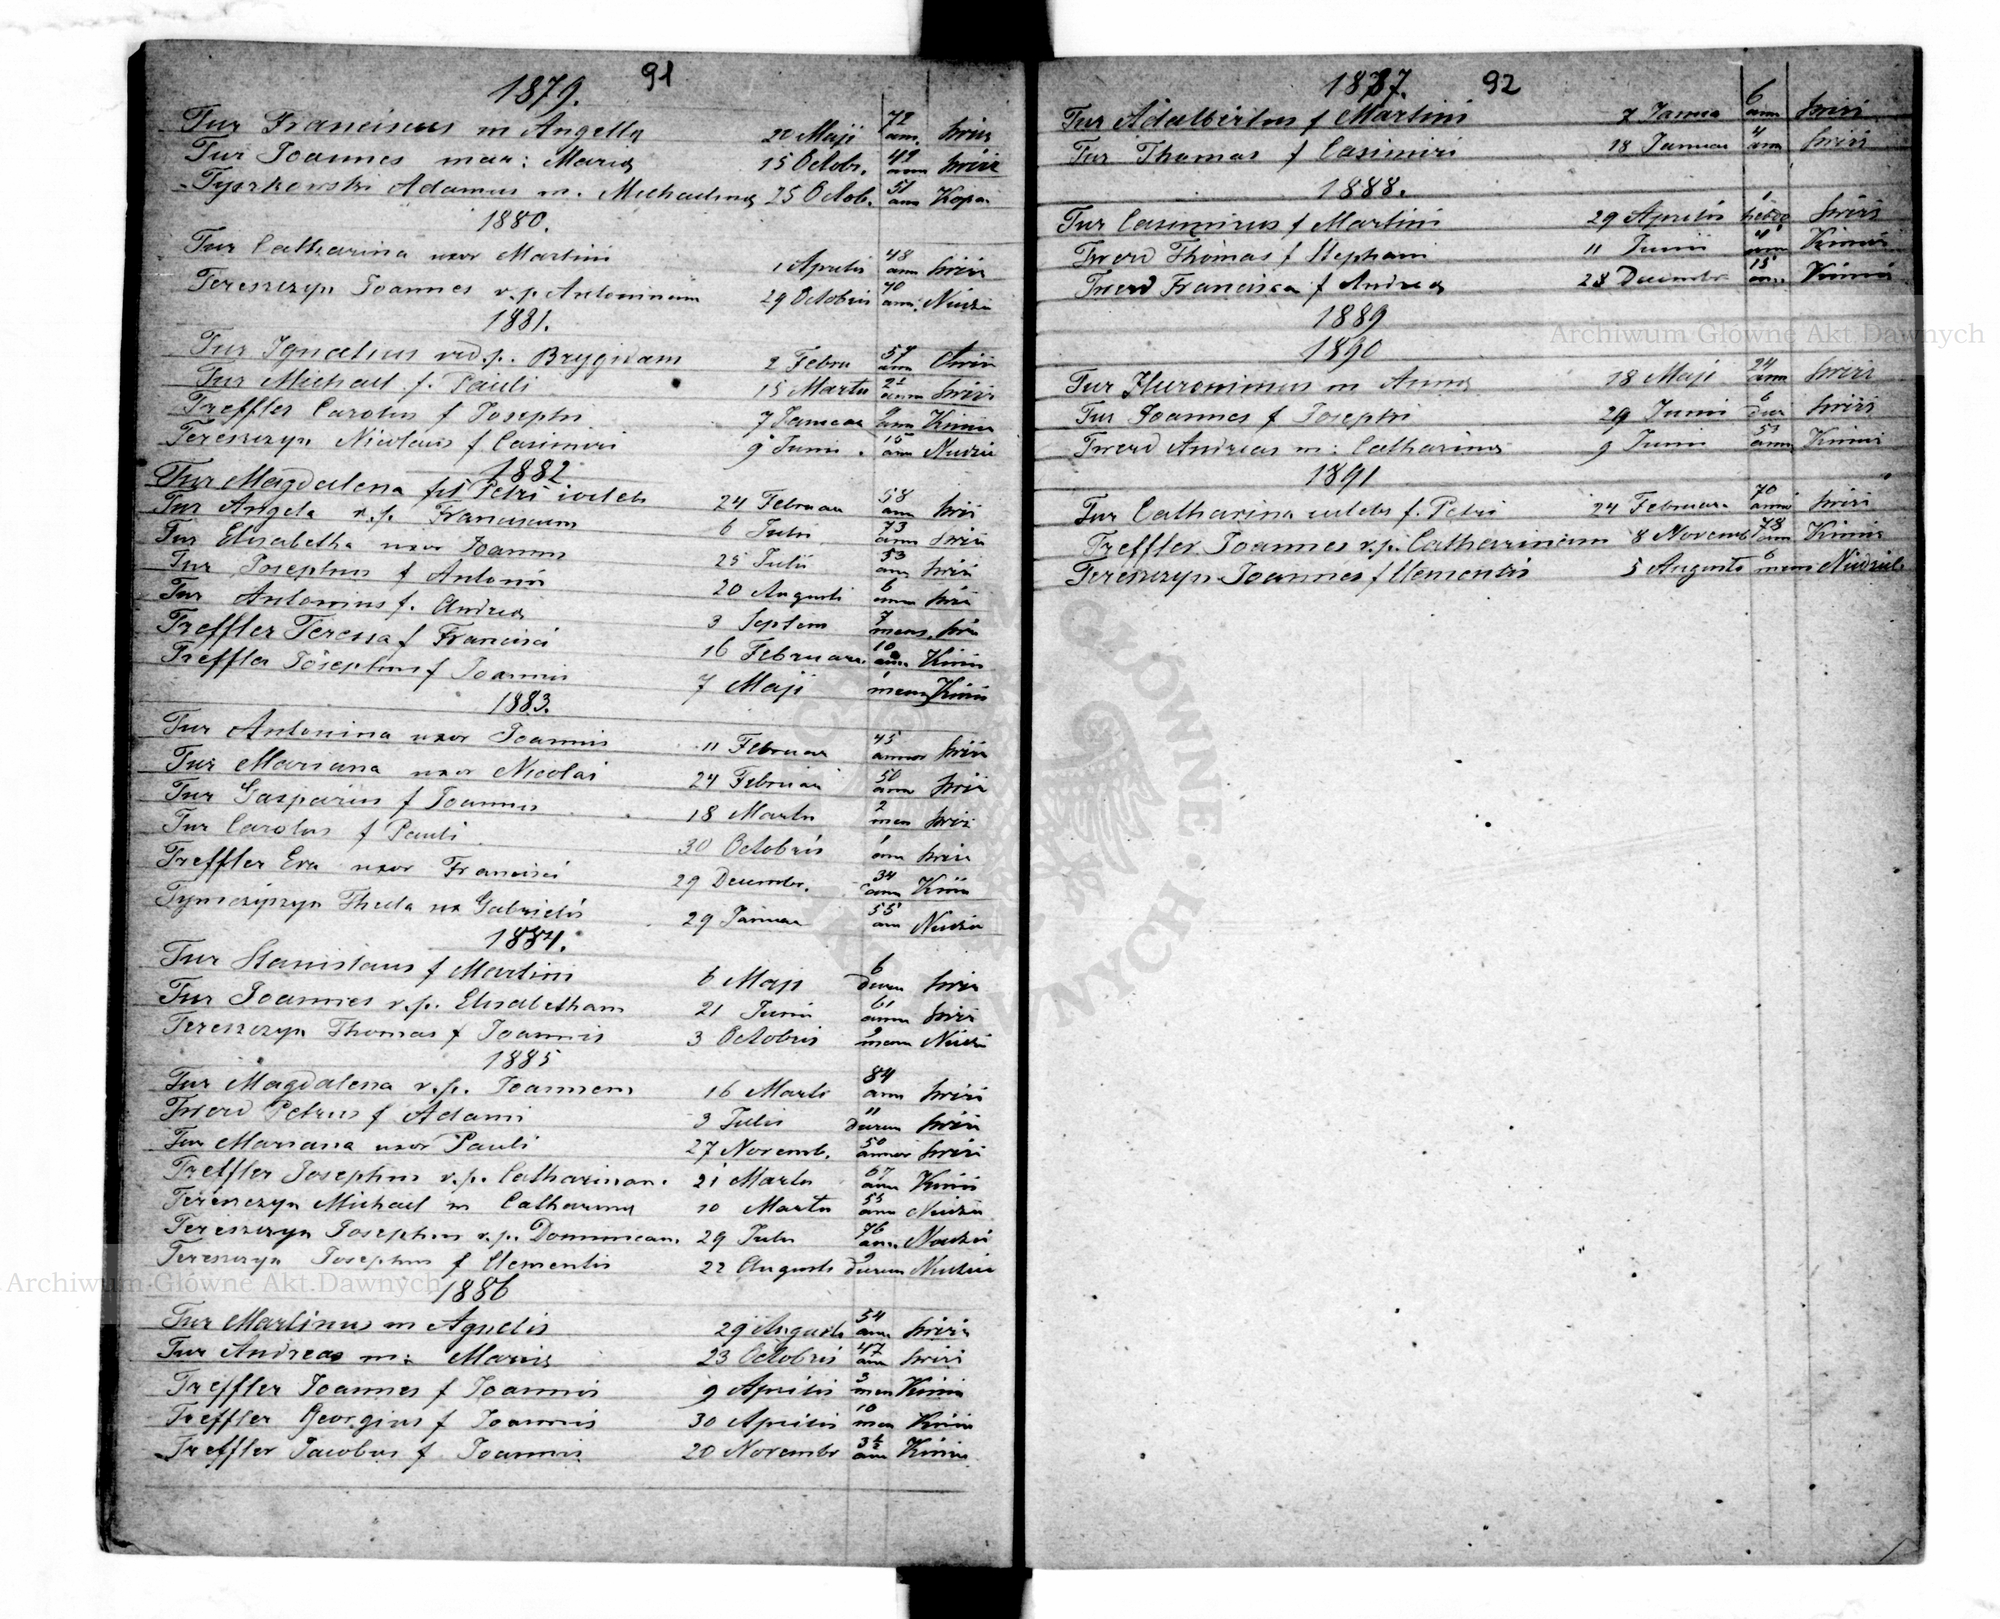 91
1879.
Tur Franciscus m Angella 20 Maji 72 ann. Swirz
Tur Joannes mar: Maria 15 Octobr. 49 ann Swirz
Tyszkowski Adamus m. Michaelina 25 Octob. 51 ann Kopa.
1880.
Tur Catharina uxor Martini 1 Aprilis 48 ann Swirz
Tereszczyn Joannes v.p. Antoninam 29 Octobris 70 ann. Niedzi
1881.
Tur Ignatius vid.p. Brygidam 2 Febru 57 ann Swirz
Tur Michael f. Pauli 15 Martii ann Swirz
Treffler Carolus f Josephi 7 Januar ann Kimir
Tereszczyn Nicolaus f Casimiri 9 Junii 15 ann Niedzi
1882
Tur Magdalena Petri 24 Februar 58 ann Swirz
Tur Angela v.p. Franciscum 6 Julii 73 ann Swirz
Tur Elisabetha uxor Joannis 25 Julii 53 ann Swirz
Tur Josephus f Antonii 20 Augusti 6 ann Swirz
Tur Antonius f. Andrea 3 Septem 7 mens. Swirz
Treffler Teressa f Francisci 16 Februar. 10 ann. Kimir
Treffler Josephus f Joannis 7 Maji 1 mens Kimir
1883.
Tur Antonina uxor Joannis 11 Februar 45 annor Swirz
Tur Mariana uxor Nicolai 24 Februar 50 ann Swirz
Tur Gasparus f Joannis 18 Martii 2 men Swirz
Tur Carolus f Pauli 30 Octobris 1 ann Swirz
Treffler Eva uxor Francisci 29 Decembr. 34 ann Kimir
Tymczyszyn Thecla ux Gabrielis 29 Januar 55 ann Niedzi
1884.
Tur Stanislaus f Martini 6 Maji 6 dierum Swirz
Tur Joannes v.p. Elisabetham 21 Junii 61 ann Swirz
Tereszczyn Thomas f Joannis 3 Octobris 9 mens Niedzi
1885
Tur Magdalena v.p. Joannem 16 Marti 84 ann Swirz
Twerd Petrus f Adami 3 Julii 11 dierum Swirz
Tur Mariana uxor Pauli 27 Novemb. 50 annor Swirz
Treffler Josephus v.p. Catharinam. 21 Martii 67 ann Kimir
Tereszczyn Michael m Catharina 10 Martii 55 ann Niedzi
Tereszczyn Josephus v.p. Dominicam. 29 Julii 76 ann. Niedzi
Tereszczyn Josephus f Clementis 22 Augusti 9 dierum Niedzi
1886
Tur Martinus m Agnetis 29 Augusti 54 ann. Swirz
Tur Andreas m: Maria 23 Octobris 47 ann Swirz
Treffler Joannes f Joannis 9 Aprilis 3 men Kimir
Treffler Georgius f Joannis 30 Aprilis 10 men Kimir
Treffler Jacobus f Joannis 20 Novembr 3½ ann Kimir
1887. 92
Tur Adalbertus f Martini 7 Janua 6 ann Swirz
Tur Thomas f Casimiri 18 Januar 4 ann Swirz
1888.
Tur Casimirus f Martini 29 Aprilis 1 hebdo Swirz
Twerd Thomas f Stephani 11 Junii 4 ann Kimir
Twerd Francisca f Andrea 28 Decembr 15 ann. Kimir
1889
1890
Tur Hieronimus m Anna 18 Maji 24 ann Swirz
Tur Joannes f Josephi 29 Junii 6 die Swirz
Twerd Andreas m: Catharina 9 Junii 53 ann Kimir
1891
Tur Catharina caelebs f. Petri 24 Februar. 70 anno Swirz
Treffler Joannes v.p. Catharinam 8 Novemb 78 ann Kimir
Tereszczyn Joannes f Clementis 5 Augusti 6 mens Niedziel
Archiwum Główne Akt Dawnych
Archiwum Główne Akt Dawnych